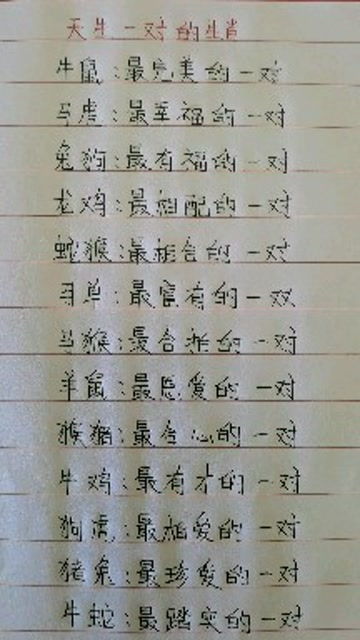 天生一对的生肖
牛鼠:最完美的一对
马虎:最幸福的一对
兔狗:最有福的一对
龙鸡:最相配的一对
蛇猴:最相合的一对
马羊:最富有的一双
马猴:最合拍的一对
羊鼠:最恩爱的一对
猴猪:最合心的一对
牛鸡:最有才的一对
狗虎:最相爱的一对
猪兔:最珍爱的一对
牛蛇:最踏实的一对